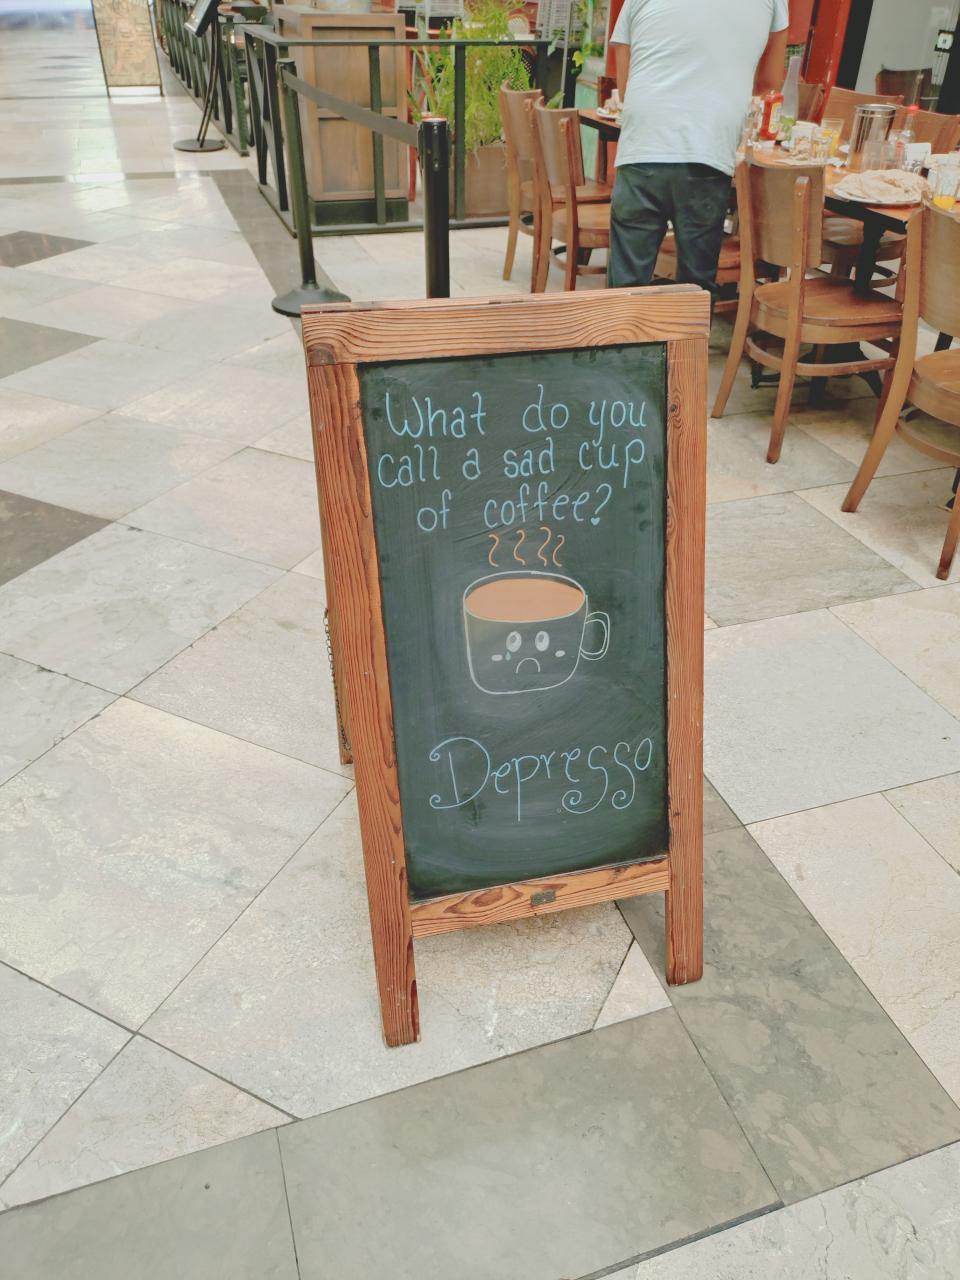 What do you
call a sad cup
of coffee?
Depresso